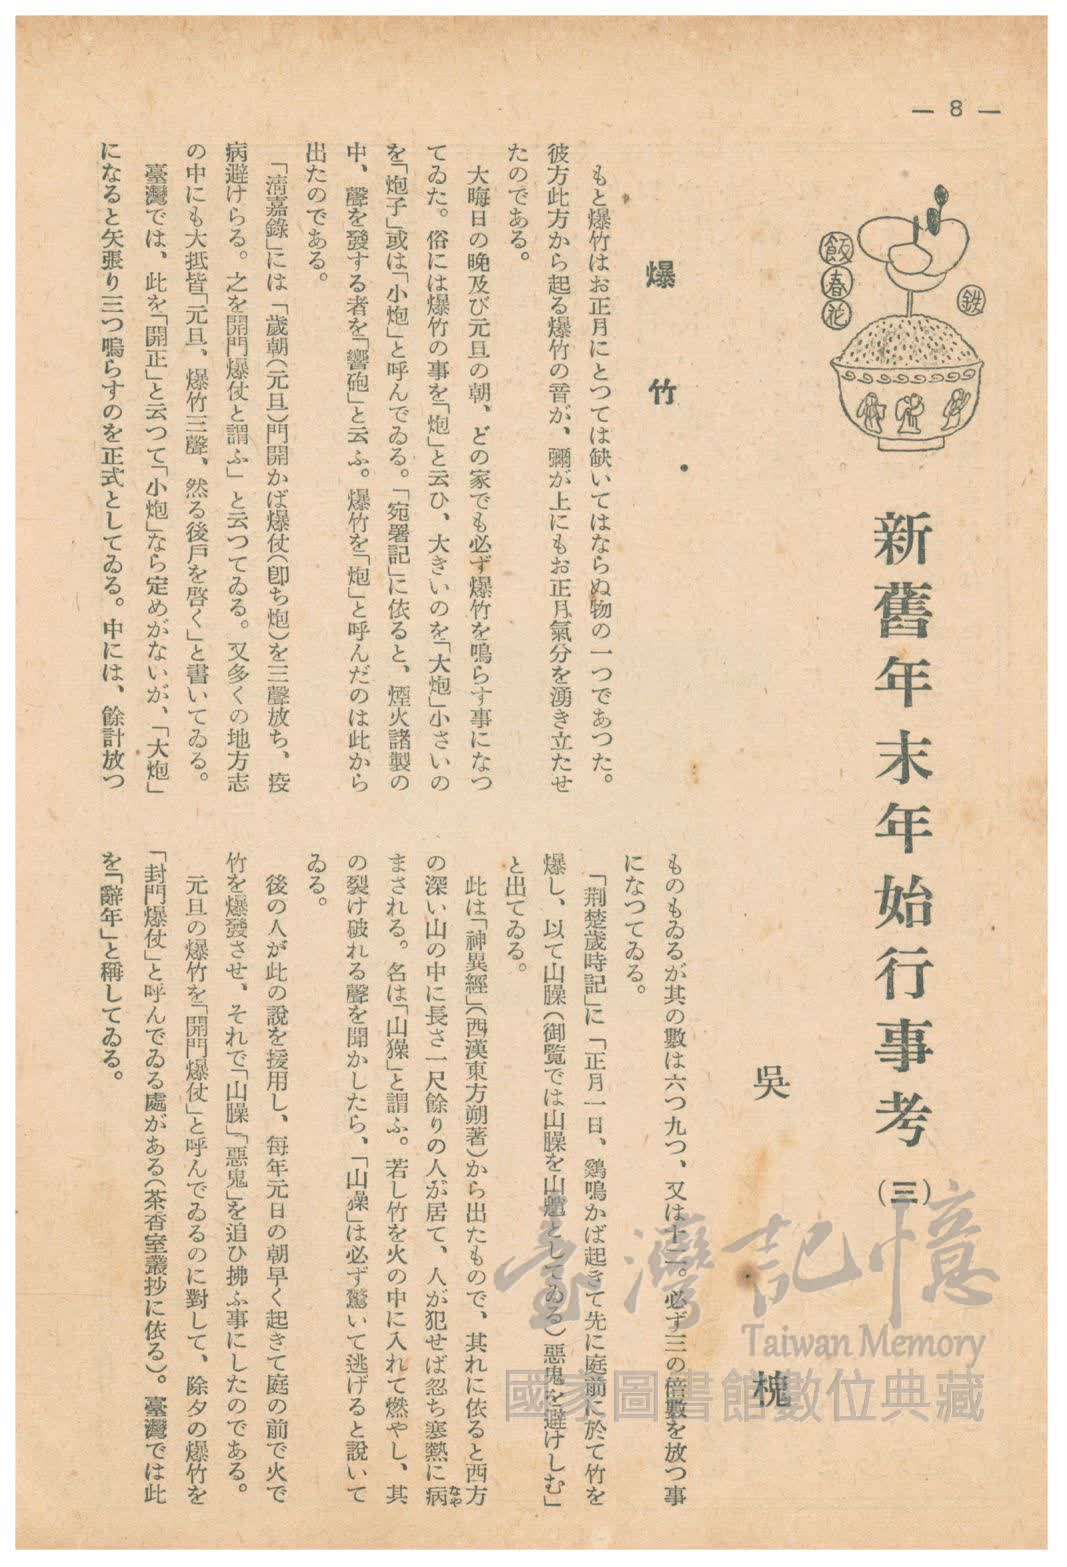 — 8 —
鉄
飯春花
新舊年末年始行事考(三)
吳 槐
爆 竹
もと爆竹はお正月にとつては缺いてはならぬ物の一つであつた。
彼方此方から起る爆竹の音が、彌が上にもお正月氣分を湧き立たせ
たのである。
大晦日の晩及び元旦の朝、どの家でも必ず爆竹を鳴らす事になつ
てゐた。俗には爆竹の事を「炮」と云ひ、大きいのを「大炮」小さいの
を「炮子」或は「小炮」と呼んでゐる。「宛署記」に依ると、煙火諸製の
中、聲を發する者を「響砲」と云ふ。爆竹を「炮」と呼んだのは此から
出たのである。
「淸嘉錄」には「歲朝(元旦)門開かば爆仗(卽ち炮)を三聲放ち、疫
病避けらる。之を開門爆仗と謂ふ」と云つてゐる。又多くの地方志
の中にも大抵皆「元旦、爆竹三聲、然る後戶を啓く」と書いてゐる。
臺灣では、此を「開正」と云つて「小炮」なら定めがないが、「大炮」
になると矢張り三つ鳴らすのを正式としてゐる。中には、餘計放つ
ものもゐるが其の數は六つ九つ、又は十二。必ず三の倍數を放つ事
になつてゐる。
「荆楚歲時記」に「正月一日、鷄鳴かば起きて先に庭前に於て竹を
爆し、以て山臊(御覧では山臊を山魈としてゐる)惡鬼を避けしむ」
と出てゐる。
此は「神異經」(西漢東方朔著)から出たもので、其れに依ると西方
の深い山の中に長さ一尺餘りの人が居て、人が犯せば忽ち寒熱に病
なや
まされる。名は「山獠」と謂ふ。若し竹を火の中に入れて燃やし、其
の裂け破れる聲を聞かしたら、「山獠」は必ず驚いて逃げると說いて
ゐる。
後の人が此の說を援用し、每年元日の朝早く起きて庭の前で火で
竹を爆發させ、それで「山臊」「惡鬼」を追ひ拂ふ事にしたのである。
元旦の爆竹を「開門爆仗」と呼んでゐるのに對して、除夕の爆竹を
「封門爆仗」と呼んでゐる處がある(茶香室叢抄に依る)。臺灣では此
を「辭年」と稱してゐる。
臺灣記憶
Taiwan Memory
國家圖書館數位典藏